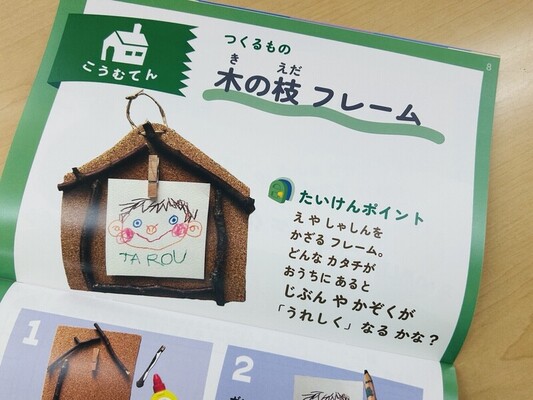 こうむてん
つくるもの
き えだ
木の枝 フレーム
8
TAROU
たいけんポイント
え や しゃしんを
かざる フレーム。
どんな カタチが
おうちに あると
じぶん や かぞくが
「うれしく」なる かな？
1
2